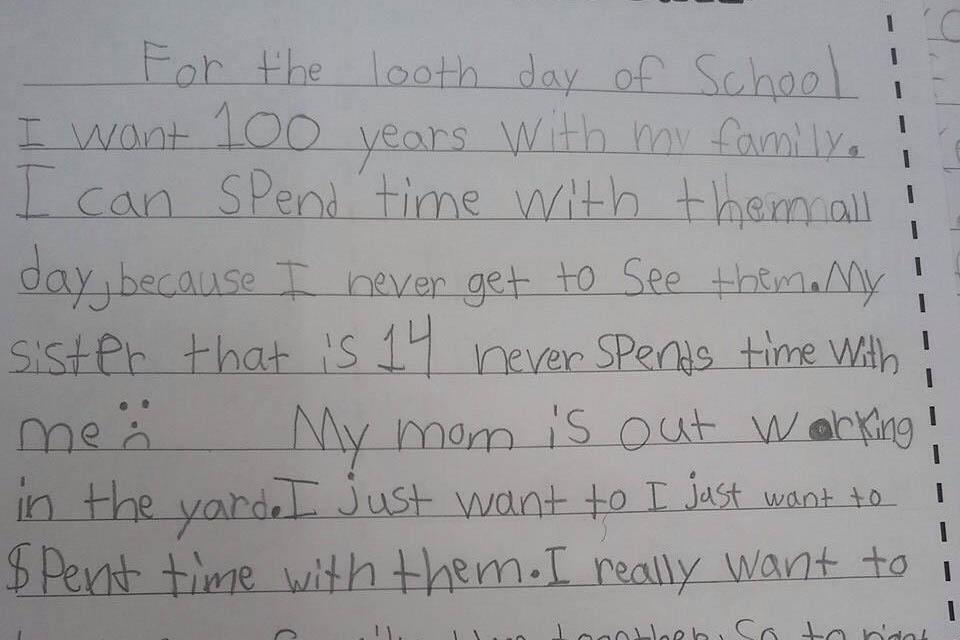 For the 100th day of School
I want 100 years With my family.
I can SPend time with themmall
day, because I never get to See them. My
sister that is 14 never SPends time With
me :( My mom is out working
in the yard. I just want to I just want to
SPent time with them. I really want to
together. So to right